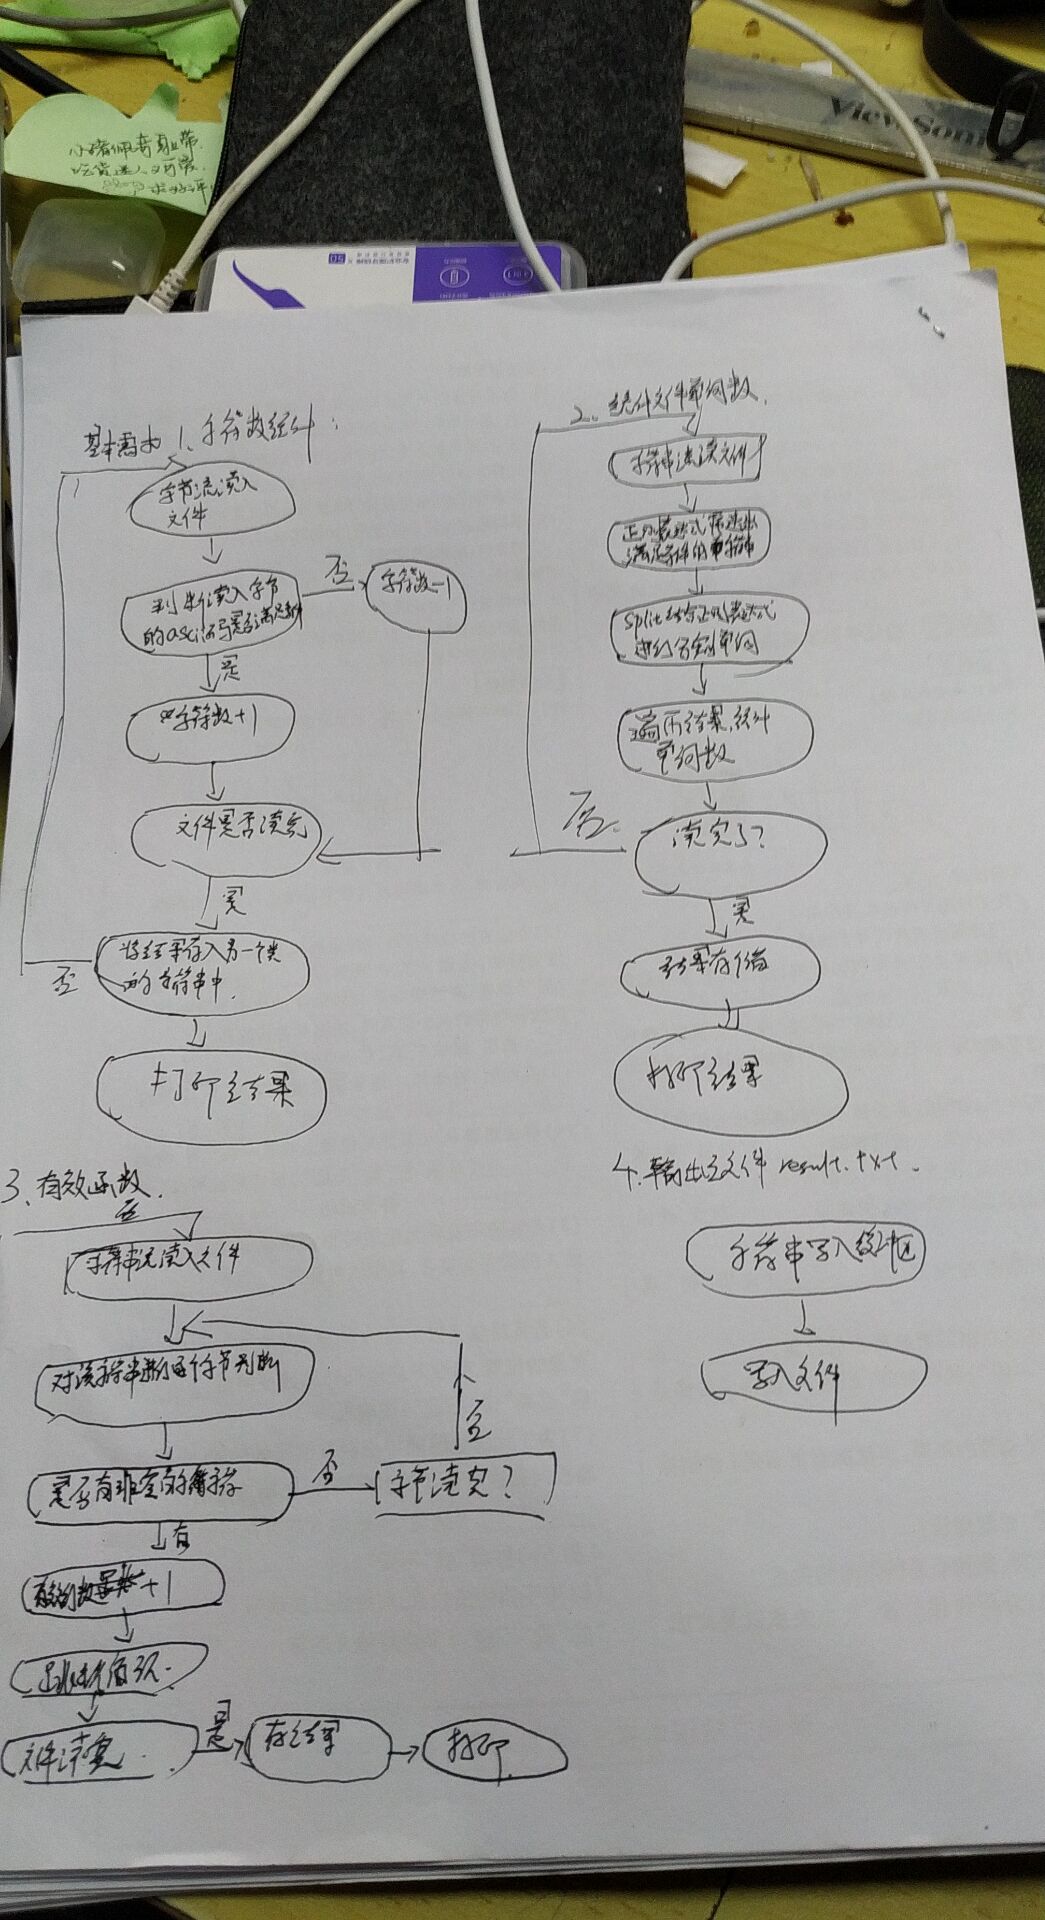 ViewSonic
基本需求 1、字符数统计：
字节流读入
文件
判断读入字节
的ascii码是否满足条件
否
字符数-1
是
字符数+1
文件是否读完
是
否
将结果存入另一个类
的字符串中.
打印结果
2、统计文件单词数.
字符串流读文件
正则表达式筛选出
满足条件的字符串
split结合正则表达式
进行分割单词
遍历结果,统计
单词数
否.
读完了?
是
结果存储
打印结果
3、有效函数.
否
字符串流读入文件
对该字符串逐个字节判断
是否有非空的字符
否
字节读完?
否
有
+1
文件读完.
是
存结果
打印.
4.输出至文件 result.txt.
字符串写入缓冲区
写入文件